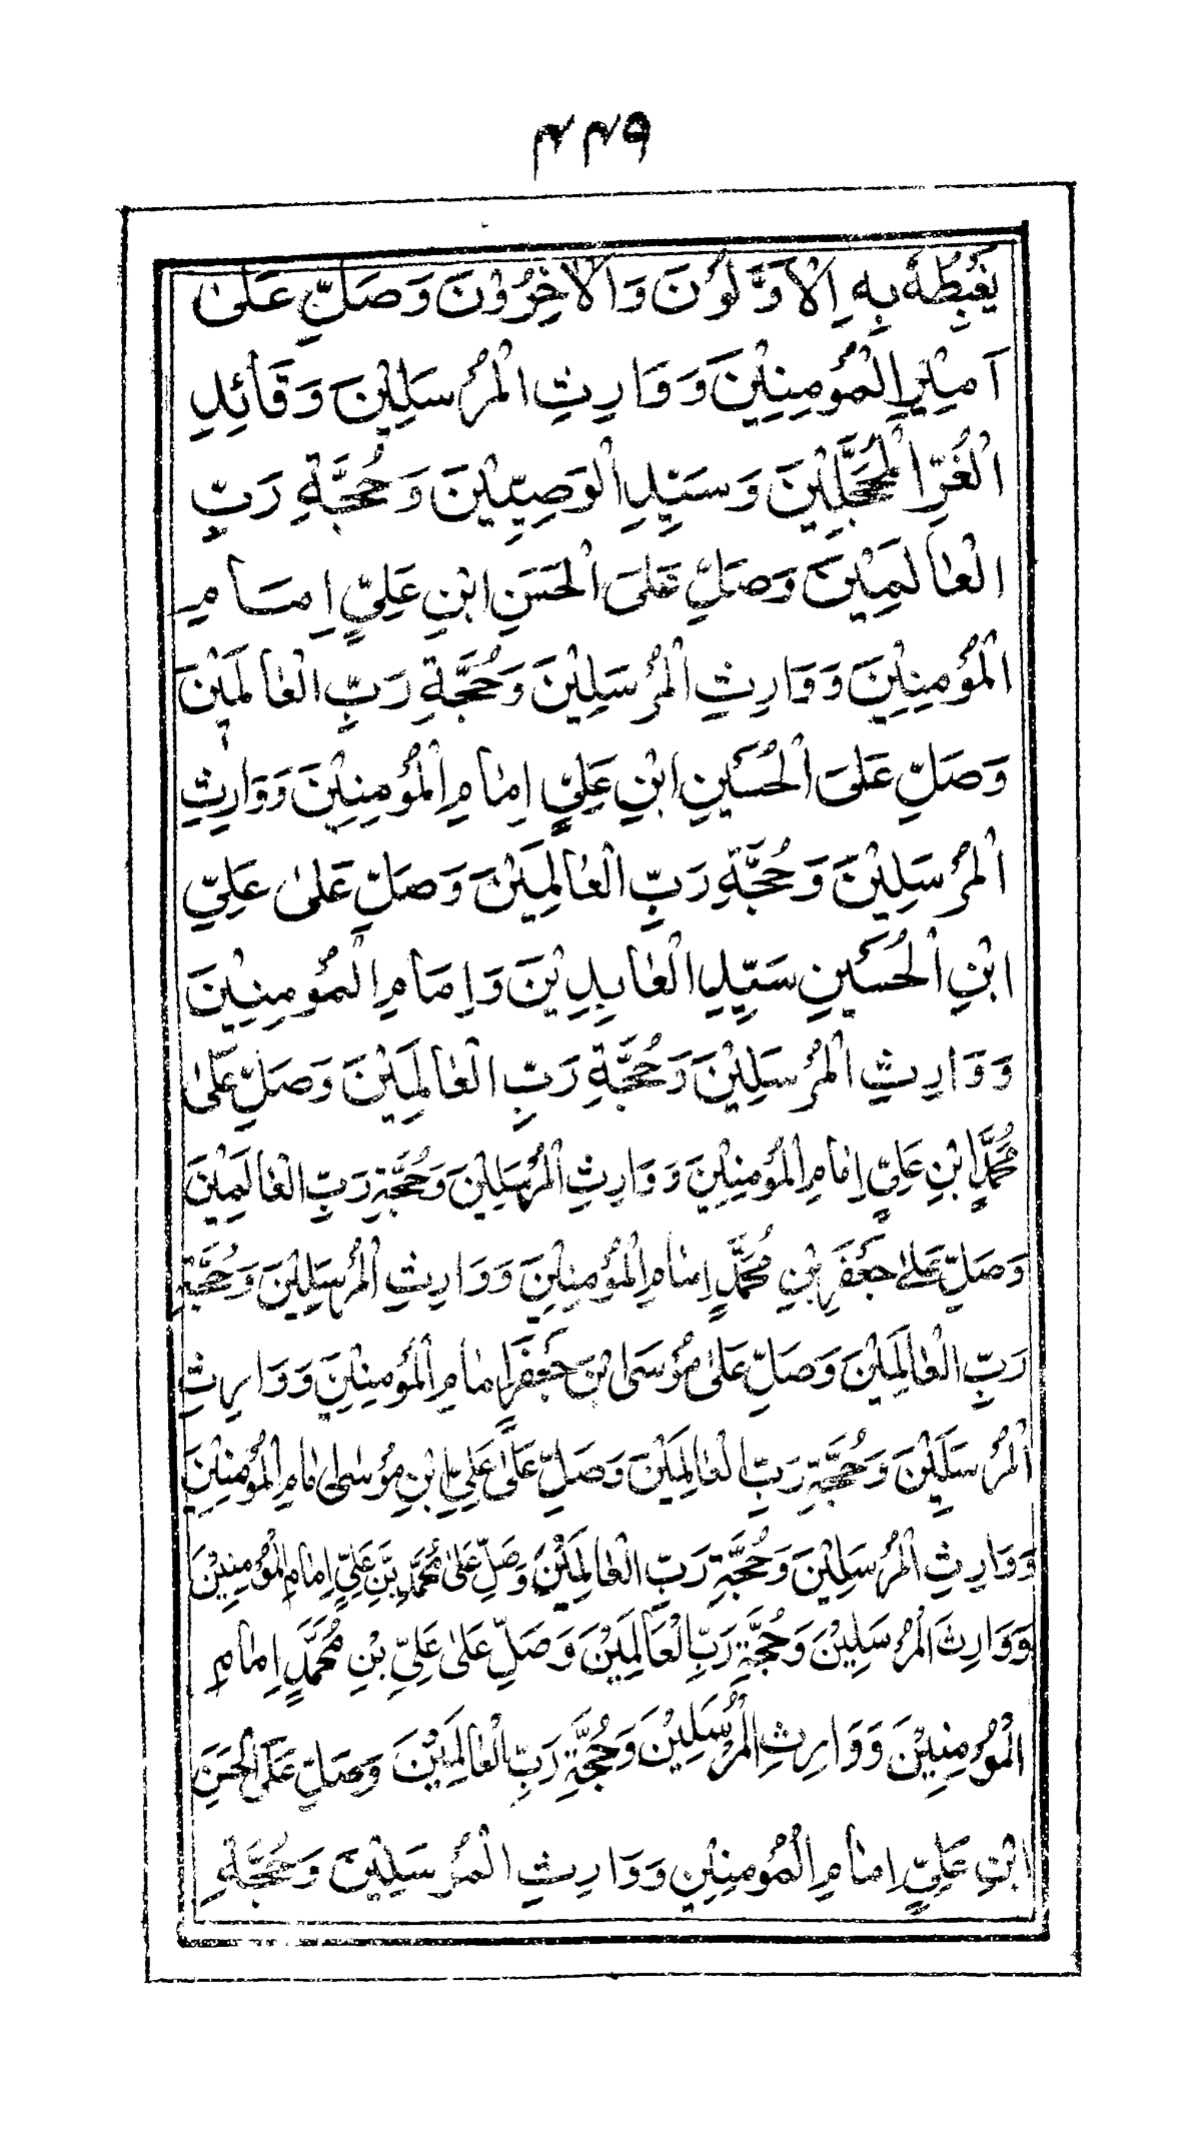 ۴۴۹
يَغْبِطُهُ بِهِ الْاَوَّلُوْنَ وَالْاٰخِرُوْنَ وَصَلِّ عَلٰى
اَمِيْرِ الْمُؤْمِنِيْنَ وَ وَارِثِ الْمُرْسَلِيْنَ وَقَائِدِ
الْغُرِّ الْمُحَجَّلِيْنَ وَسَيِّدِ الْوَصِيِّيْنَ وَحُجَّةِ رَبِّ
الْعَالَمِيْنَ وَصَلِّ عَلَى الْحَسَنِ ابْنِ عَلِيٍّ اِمَامِ
الْمُؤْمِنِيْنَ وَوَارِثِ الْمُرْسَلِيْنَ وَحُجَّةِ رَبِّ الْعٰالَمِيْنَ
وَصَلِّ عَلَى الْحُسَيْنِ ابْنِ عَلِيٍّ اِمٰامِ الْمُؤْمِنِيْنَ وَوَارِثِ
الْمُرْسَلِيْنَ وَحُجَّةِ رَبِّ الْعٰالَمِيْنَ وَصَلِّ عَلٰى عَلِيِّ
ابْنِ الْحُسَيْنِ سَيِّدِ الْعٰابِدِيْنَ وَاِمَامِ الْمُؤْمِنِيْنَ
وَوَارِثِ الْمُرْسَلِيْنَ وَحُجَّةِ رَبِّ الْعٰالَمِيْنَ وَصَلِّ عَلٰى
مُحَمَّدِ ابْنِ عَلِيٍّ اِمٰامِ الْمُؤْمِنِيْنَ وَوَارِثِ الْمُرْسَلِيْنَ وَحُجَّةِ رَبِّ الْعٰالَمِيْنَ
وَصَلِّ عَلٰى جَعْفَرِ بْنِ مُحَمَّدٍ اِمٰامِ الْمُؤْمِنِيْنَ وَوَارِثِ الْمُرْسَلِيْنَ وَحُجَّةِ
رَبِّ الْعٰالَمِيْنَ وَصَلِّ عَلٰى مُوْسَى ابْنِ جَعْفَرٍ اِمٰامِ الْمُؤْمِنِيْنَ وَوَارِثِ
الْمُرْسَلِيْنَ وَحُجَّةِ رَبِّ الْعٰالَمِيْنَ وَصَلِّ عَلٰى عَلِيِّ ابْنِ مُوْسٰى اِمٰامِ الْمُؤْمِنِيْنَ
وَوَارِثِ الْمُرْسَلِيْنَ وَحُجَّةِ رَبِّ الْعٰالَمِيْنَ وَصَلِّ عَلٰى مُحَمَّدِ بْنِ عَلِيٍّ اِمٰامِ الْمُؤْمِنِيْنَ
وَوَارِثِ الْمُرْسَلِيْنَ وَحُجَّةِ رَبِّ الْعَالَمِيْنَ وَصَلِّ عَلٰى عَلِيِّ بْنِ مُحَمَّدٍ اِمٰامِ
الْمُؤْمِنِيْنَ وَوَارِثِ الْمُرْسَلِيْنَ وَحُجَّةِ رَبِّ الْعٰالَمِيْنَ وَصَلِّ عَلَى الْحَسَنِ
ابْنِ عَلِيٍّ اِمٰامِ الْمُؤْمِنِيْنَ وَوَارِثِ الْمُرْسَلِيْنَ وَحُجَّةِ